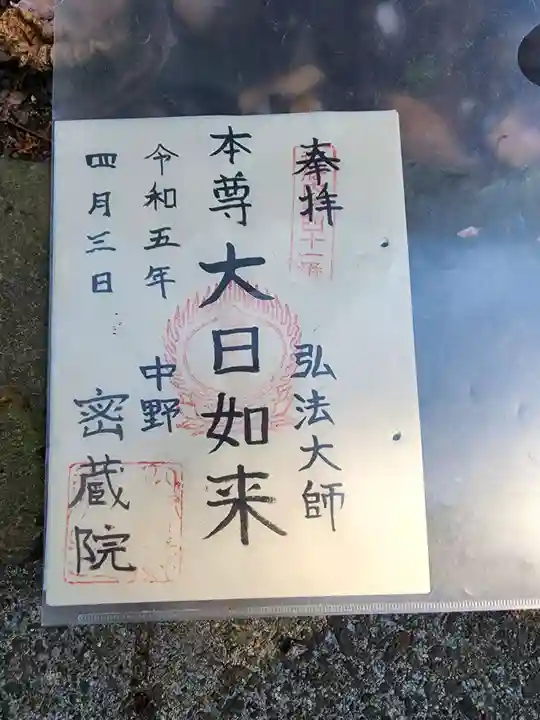 奉拝
弘法大師
本尊 大日如来
令和五年
中野
四月三日
密蔵院